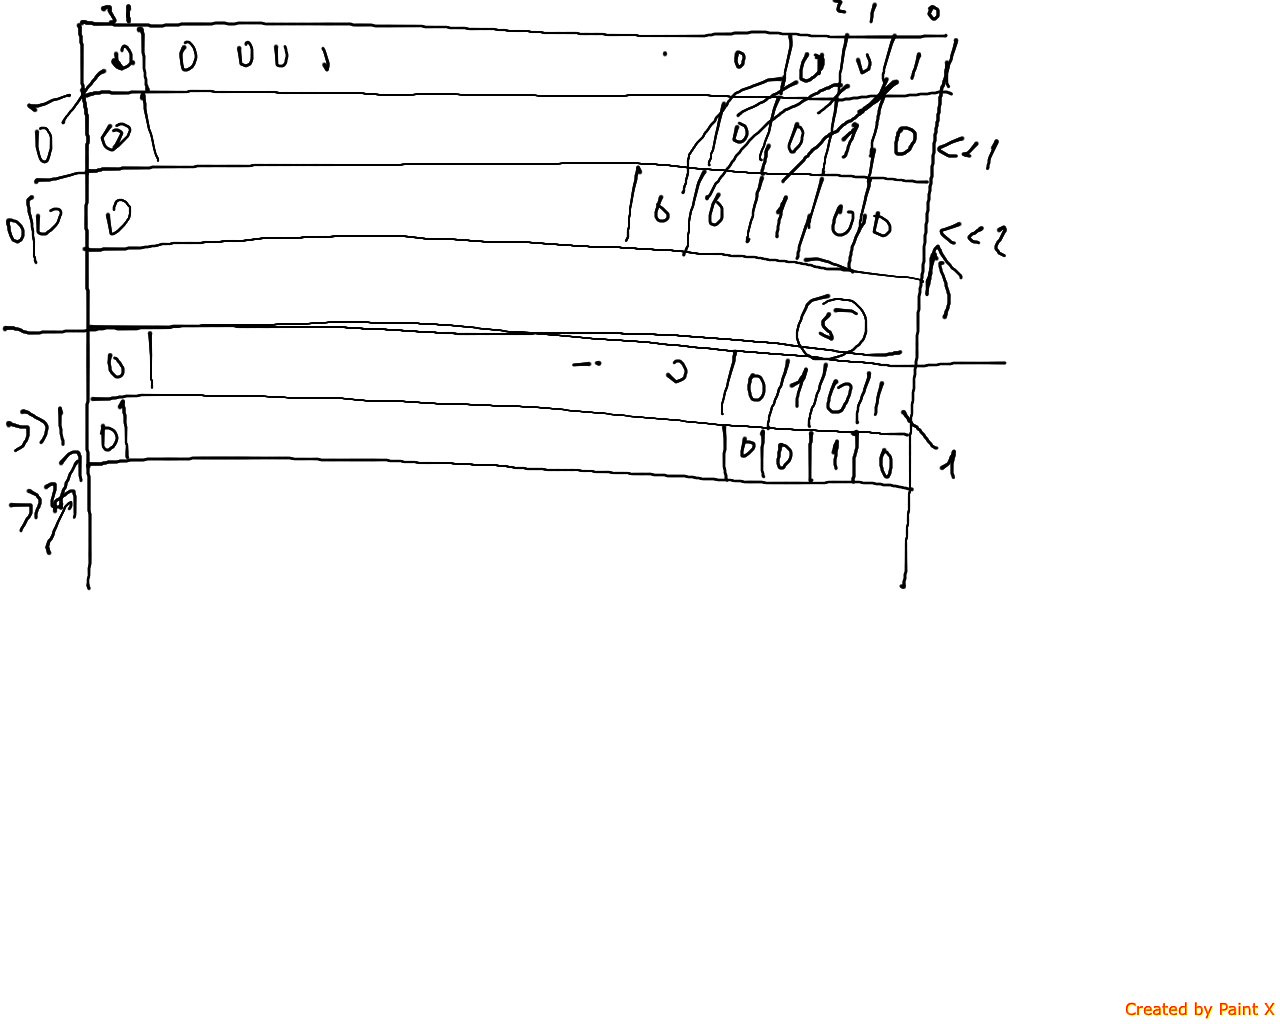 31 2 1 0
0 0 0 0 0 0 0 1
0 0 0 0 1 0 <<1
0 0 0 0 0 1 0 0 <<2
5
0 -· 0 0 1 0 1
>>1 0 0 0 1 0 1
>>
Created by Paint X